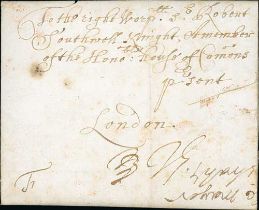 To the right worpll Sr Robert
Southwell Knight, A member
of the Honoble house of Comons
psent
London